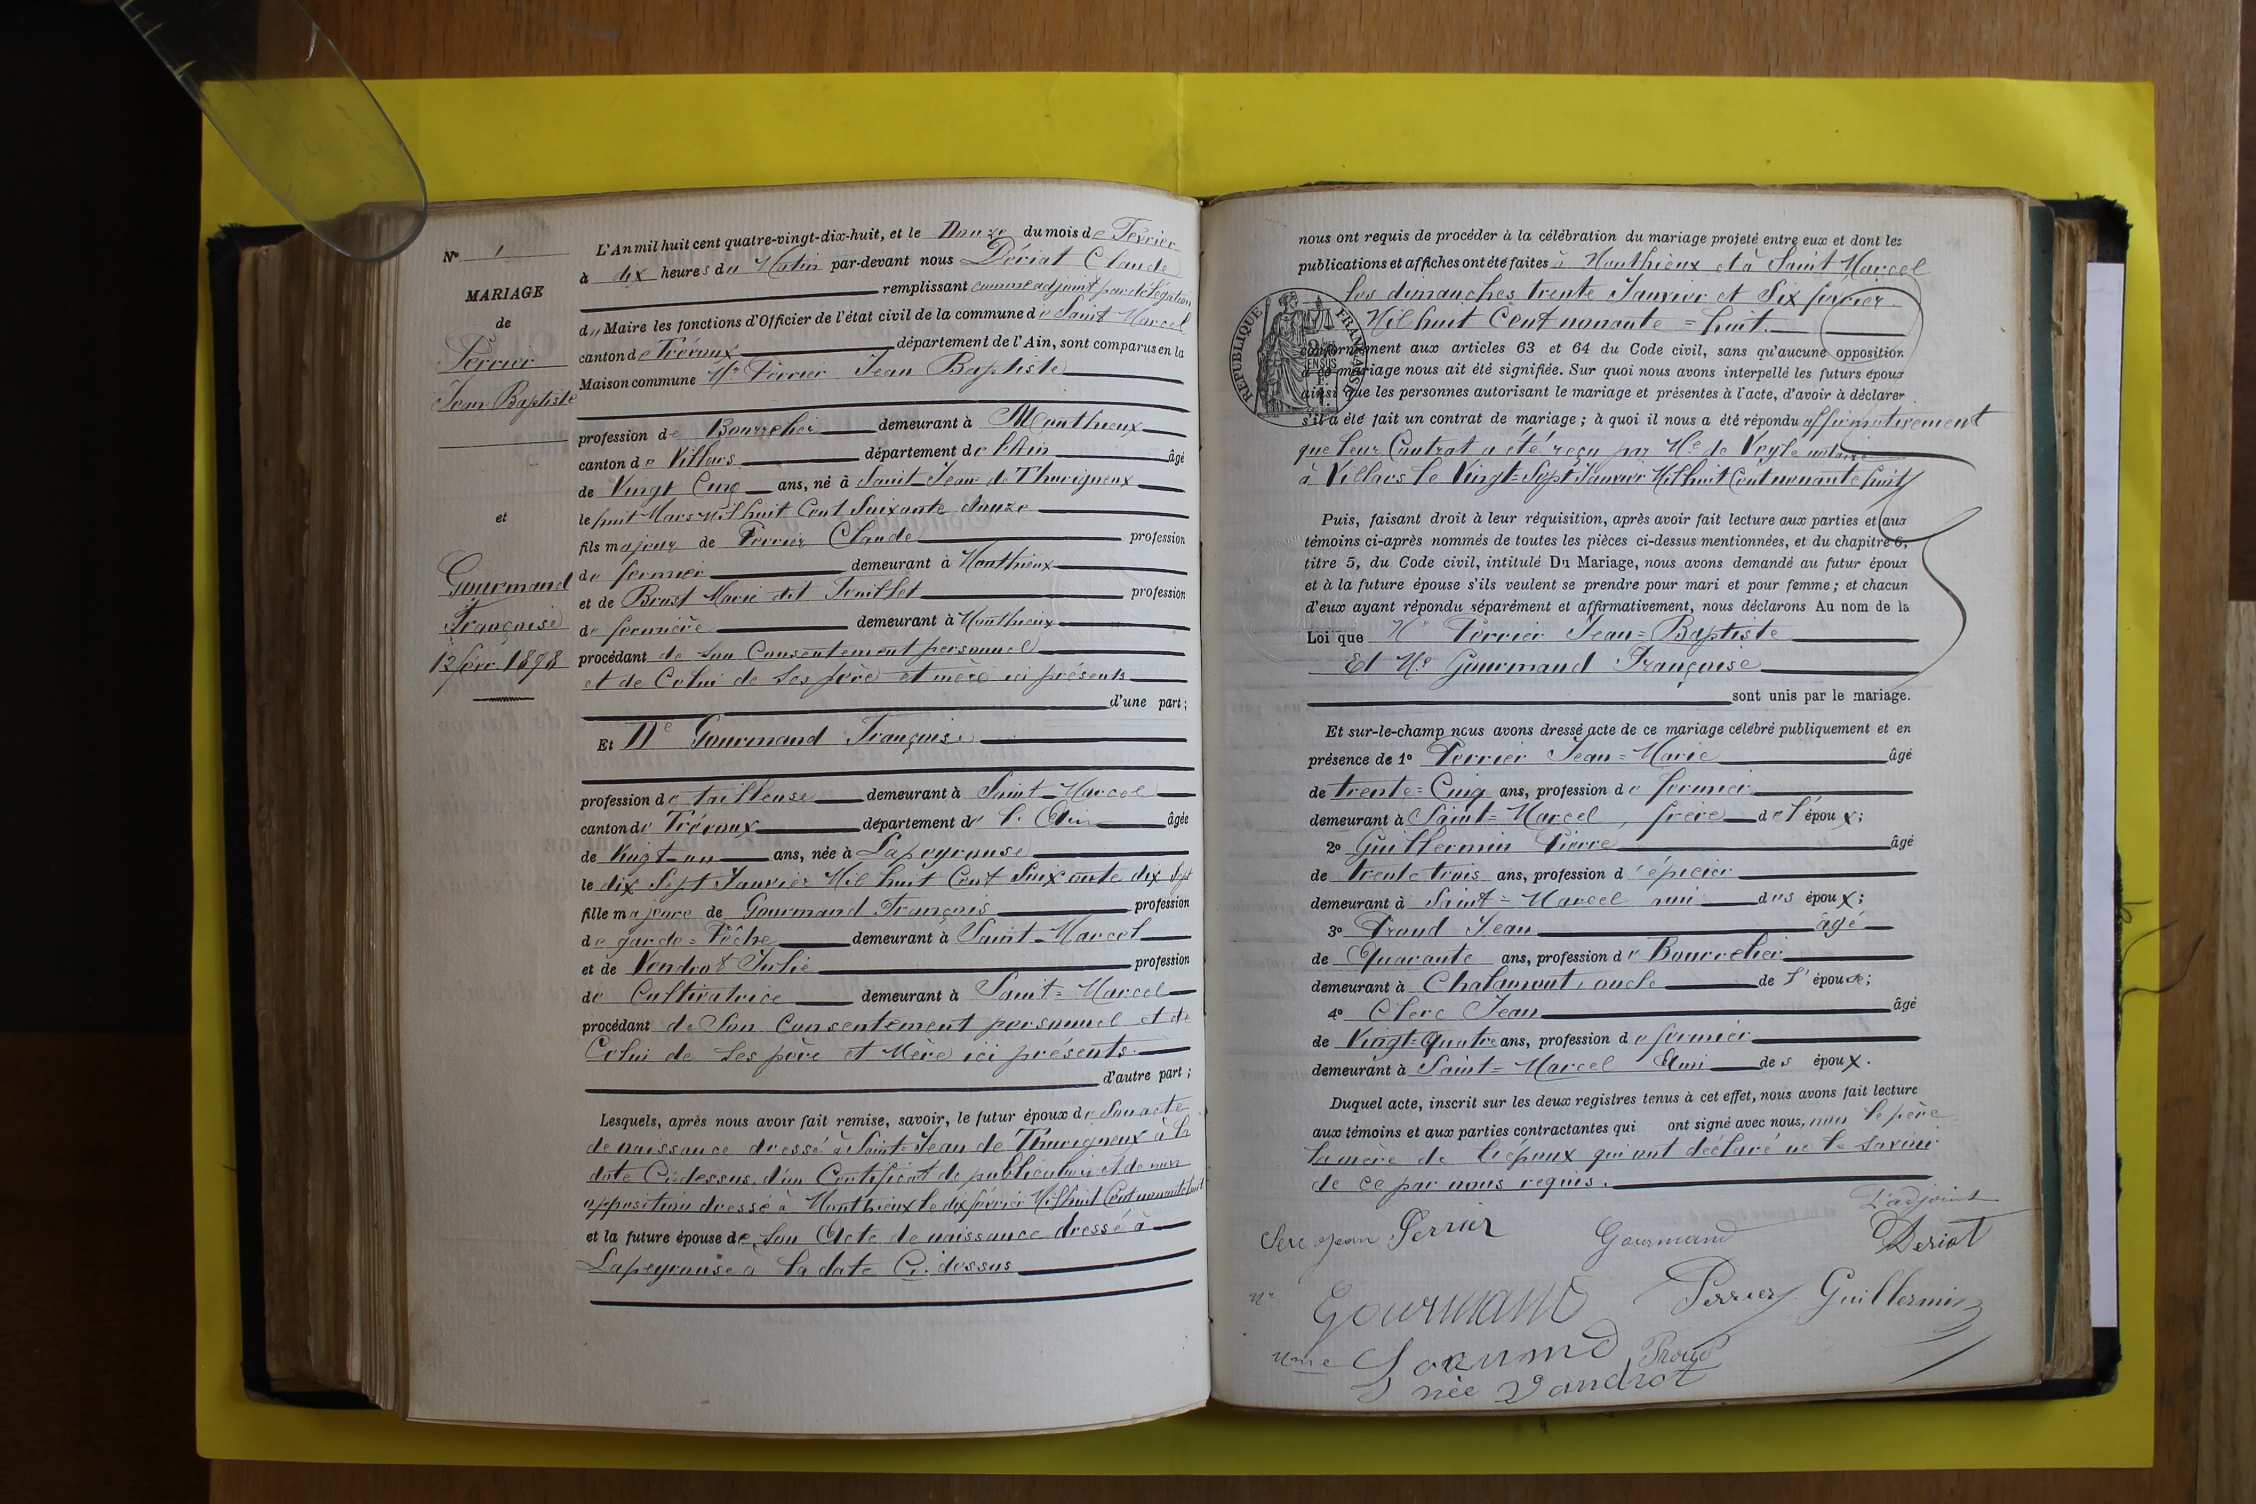 N° 1
MARIAGE
de
Perrier
Jean Baptiste
et
Gourmand
Françoise
12 févr. 1898
L'An mil huit cent quatre-vingt-dix-huit, et le Douze du mois de Février
à dix heures du Matin par-devant nous Dériat Claude
remplissant comme adjoint par délégation
du Maire les fonctions d'Officier de l'état civil de la commune de Saint Marcel
canton de Trévoux département de l'Ain, sont comparus en la
Maison commune Mr Perrier Jean Baptiste
profession de Bourrelier demeurant à Monthieux
canton de Villars département de l'Ain âgé
de Vingt Cinq ans, né à Saint-Jean de Thurigneux
le huit Mars Mil huit Cent Soixante douze
fils majeur de Perrier Claude profession
de fermier demeurant à Monthieux
et de Brost Marie dit Touillet profession
de fermière demeurant à Monthieux
procédant de son Consentement personnel
et de Celui de Ses père et mère ici présents
d'une part ;
Et Dlle Gourmand Françoise
profession de tailleuse demeurant à Saint-Marcel
canton de Trévoux département de l'Ain âgée
de Vingt-un ans, née à Lapeyrouse
le dix Sept Janvier Mil huit Cent Soixante dix Sept
fille majeure de Gourmand François profession
de garde-Pêche demeurant à Saint-Marcel
et de Vendrot Julie profession
de Cultivatrice demeurant à Saint=Marcel
procédant de Son Consentement personnel et de
Celui de Ses père et Mère ici présents.
d'autre part ;
Lesquels, après nous avoir fait remise, savoir, le futur époux de Son acte
de naissance dressé à Saint-Jean de Thurigneux à la
date Ci-dessus, d'un Certificat de publication et de non
opposition dressé à Monthieux le dix février Mil huit Cent nonante huit
et la future épouse de Son Acte de naissance dressé à
Lapeyrouse à la date Ci-dessus
nous ont requis de procéder à la célébration du mariage projeté entre eux et dont les
publications et affiches ont été faites à Monthieux et à Saint Marcel
les dimanches trente Janvier et Six février
Mil huit Cent nonante = huit.
RÉPUBLIQUE FRANÇAISE
conformément aux articles 63 et 64 du Code civil, sans qu'aucune opposition
à ce mariage nous ait été signifiée. Sur quoi nous avons interpellé les futurs époux
ainsi que les personnes autorisant le mariage et présentes à l'acte, d'avoir à déclarer
s'il a été fait un contrat de mariage ; à quoi il nous a été répondu affirmativement
que leur Contrat a été reçu par Me de Veyle notaire
à Villars le Vingt=Sept Janvier Mil huit Cent nonante huit
Puis, faisant droit à leur réquisition, après avoir fait lecture aux parties et aux
témoins ci-après nommés de toutes les pièces ci-dessus mentionnées, et du chapitre 6,
titre 5, du Code civil, intitulé Du Mariage, nous avons demandé au futur époux
et à la future épouse s'ils veulent se prendre pour mari et pour femme ; et chacun
d'eux ayant répondu séparément et affirmativement, nous déclarons Au nom de la
Loi que Mr Perrier Jean=Baptiste
Et Mlle Gourmand Françoise
sont unis par le mariage.
Et sur-le-champ nous avons dressé acte de ce mariage célébré publiquement et en
présence de 1° Perrier Jean=Marie âgé
de trente=Cinq ans, profession de fermier
demeurant à Saint=Marcel, frère de l'époux ;
2° Guillermin Pierre âgé
de trente trois ans, profession d'épicier
demeurant à Saint=Marcel ami des époux ;
3° Proud Jean âgé
de Quarante ans, profession de Bourrelier
demeurant à Chalamont, oncle de l'épouse ;
4° Clerc Jean âgé
de Vingt=Quatre ans, profession de fermier
demeurant à Saint=Marcel Ami des époux.
Duquel acte, inscrit sur les deux registres tenus à cet effet, nous avons fait lecture
aux témoins et aux parties contractantes qui ont signé avec nous, non le père
la mère de l'époux qui ont déclaré ne le savoir
de ce par nous requis.
L'adjoint
Clerc Jean Perrier Gourmand Dériat
Mr Gourmand Perrier Guillermin
Mme Gourmand Proud
née Vandrot